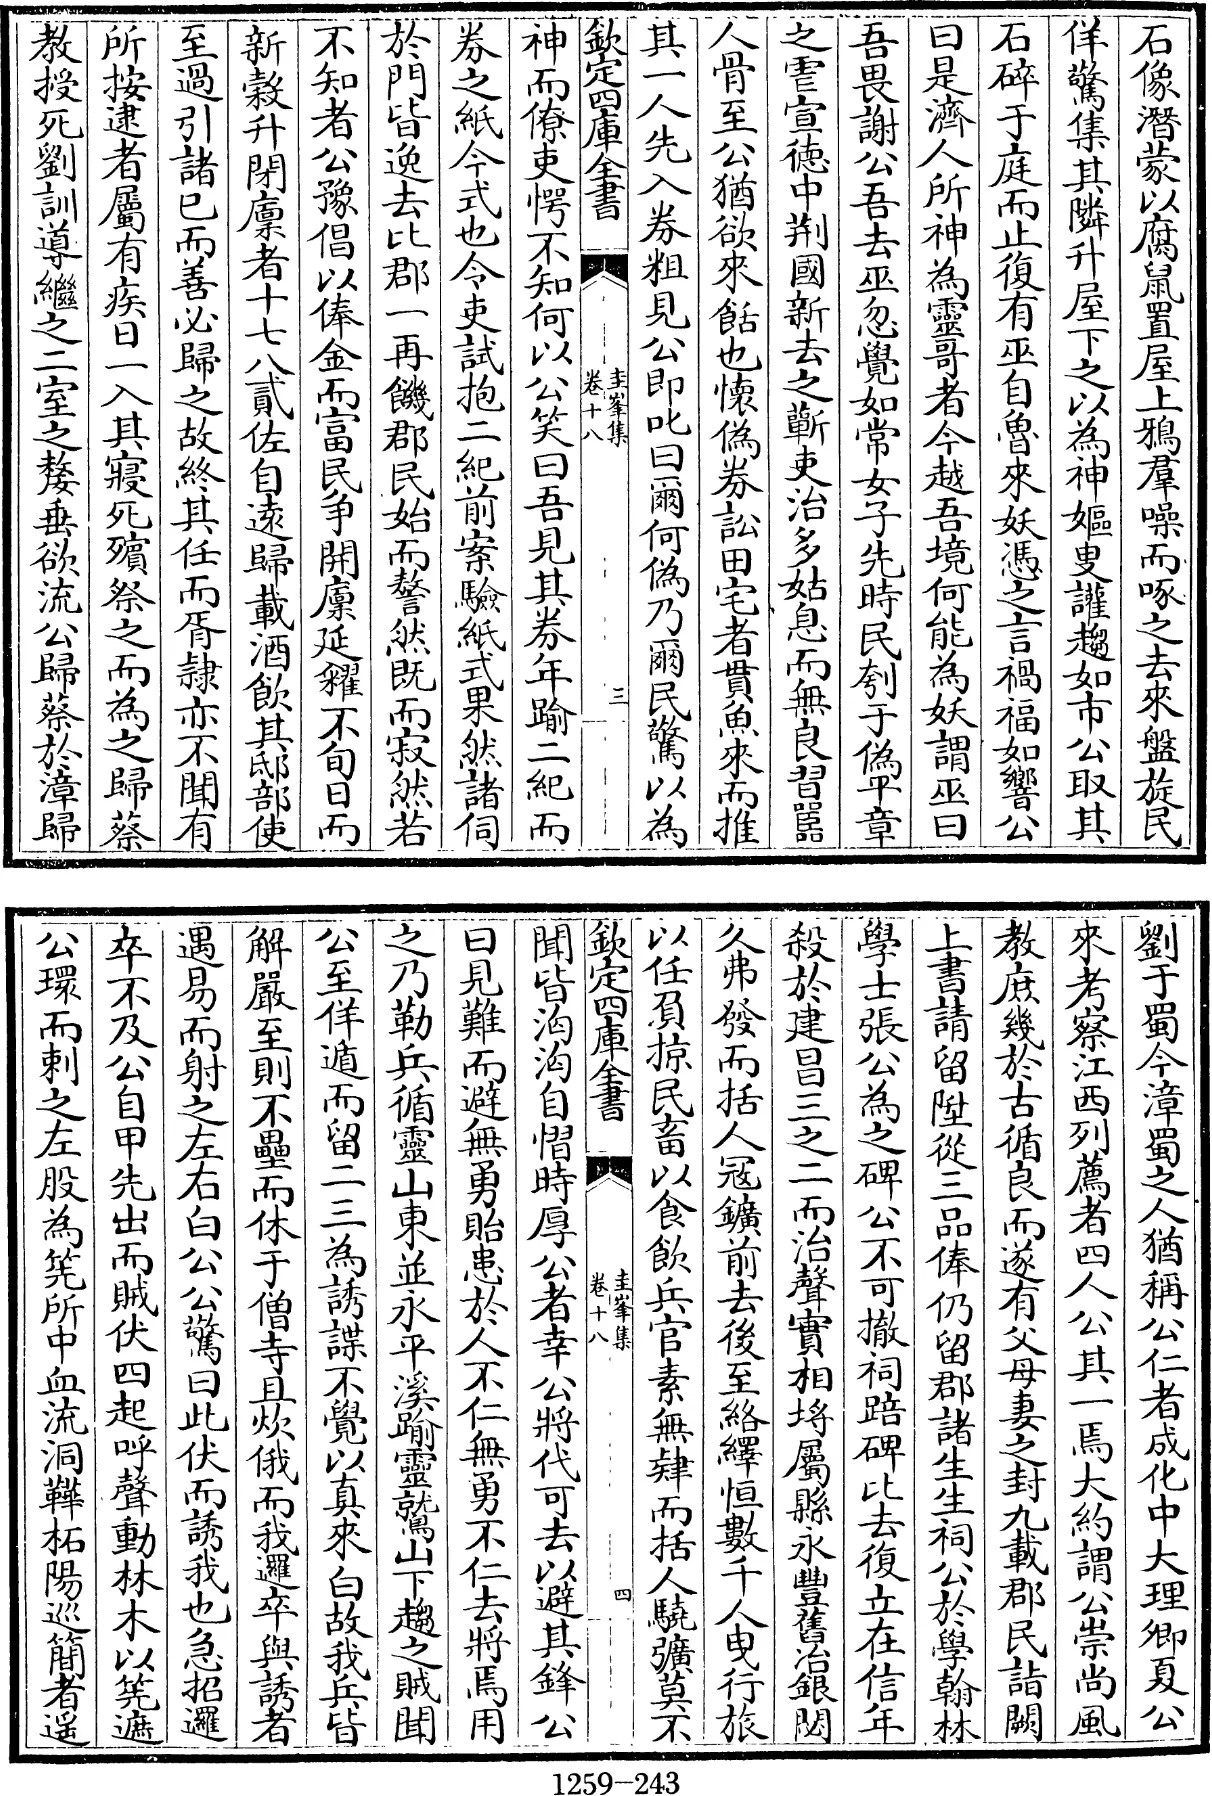 石像潛蒙以腐鼠置屋上鴉羣噪而啄之去來盤旋民
佯驚集其隣升屋下之以為神嫗叟讙趨如市公取其
石碎于庭而止復有巫自魯來妖憑之言禍福如響公
曰是濟人所神為靈哥者今越吾境何能為妖謂巫曰
吾畏謝公吾去巫忽覺如常女子先時民刳于偽平章
之雩宣德中荆國新去之蘄吏治多姑息而無良習嚚
人骨至公猶欲來餂也懷偽券訟田宅者貫魚來而推
其一人先入券粗見公即叱曰爾何偽乃爾民驚以為
欽定四庫全書
圭峯集
卷十八
三
神而僚吏愕不知何以公笑曰吾見其券年踰二紀而
券之紙今式也令吏試抱二紀前案驗紙式果然諸伺
於門皆逸去比郡一再饑郡民始而嗸然既而寂然若
不知者公豫倡以俸金而富民爭開廩延糴不旬日而
新穀升閉廩者十七八貳佐自遠歸載酒飲其邸部使
至過引諸已而善必歸之故終其任而胥隷亦不聞有
所按逮者屬有疾日一入其寢死殯祭之而為之歸蔡
教授死劉訓導繼之二室之嫠垂欲流公歸蔡於漳歸
劉于蜀今漳蜀之人猶稱公仁者成化中大理卿夏公
來考察江西列薦者四人公其一焉大約謂公崇尚風
教庶幾於古循良而遂有父母妻之封九載郡民詣闕
上書請留陞從三品俸仍留郡諸生生祠公於學翰林
學士張公為之碑公不可撤祠踣碑比去復立在信年
殺於建昌三之二而治聲實相埒屬縣永豐舊冶銀閎
久弗發而括人冦鑛前去後至絡繹恒數千人曳行旅
以任負掠民畜以食飲兵官素無肄而括人驍彍莫不
欽定四庫全書
圭峯集
卷十八
四
聞皆洶洶自慴時厚公者幸公將代可去以避其鋒公
曰見難而避無勇貽患於人不仁無勇不仁去將焉用
之乃勒兵循靈山東並永平溪踰靈鷲山下趨之賊聞
公至佯遁而留二三為誘諜不覺以真來白故我兵皆
解嚴至則不壘而休于僧寺且炊俄而我邏卒與誘者
遇易而射之左右白公公驚曰此伏而誘我也急招邏
卒不及公自甲先出而賊伏四起呼聲動林木以筅遮
公環而刺之左股為筅所中血流洞鞾柘陽巡簡者遥
1259-243